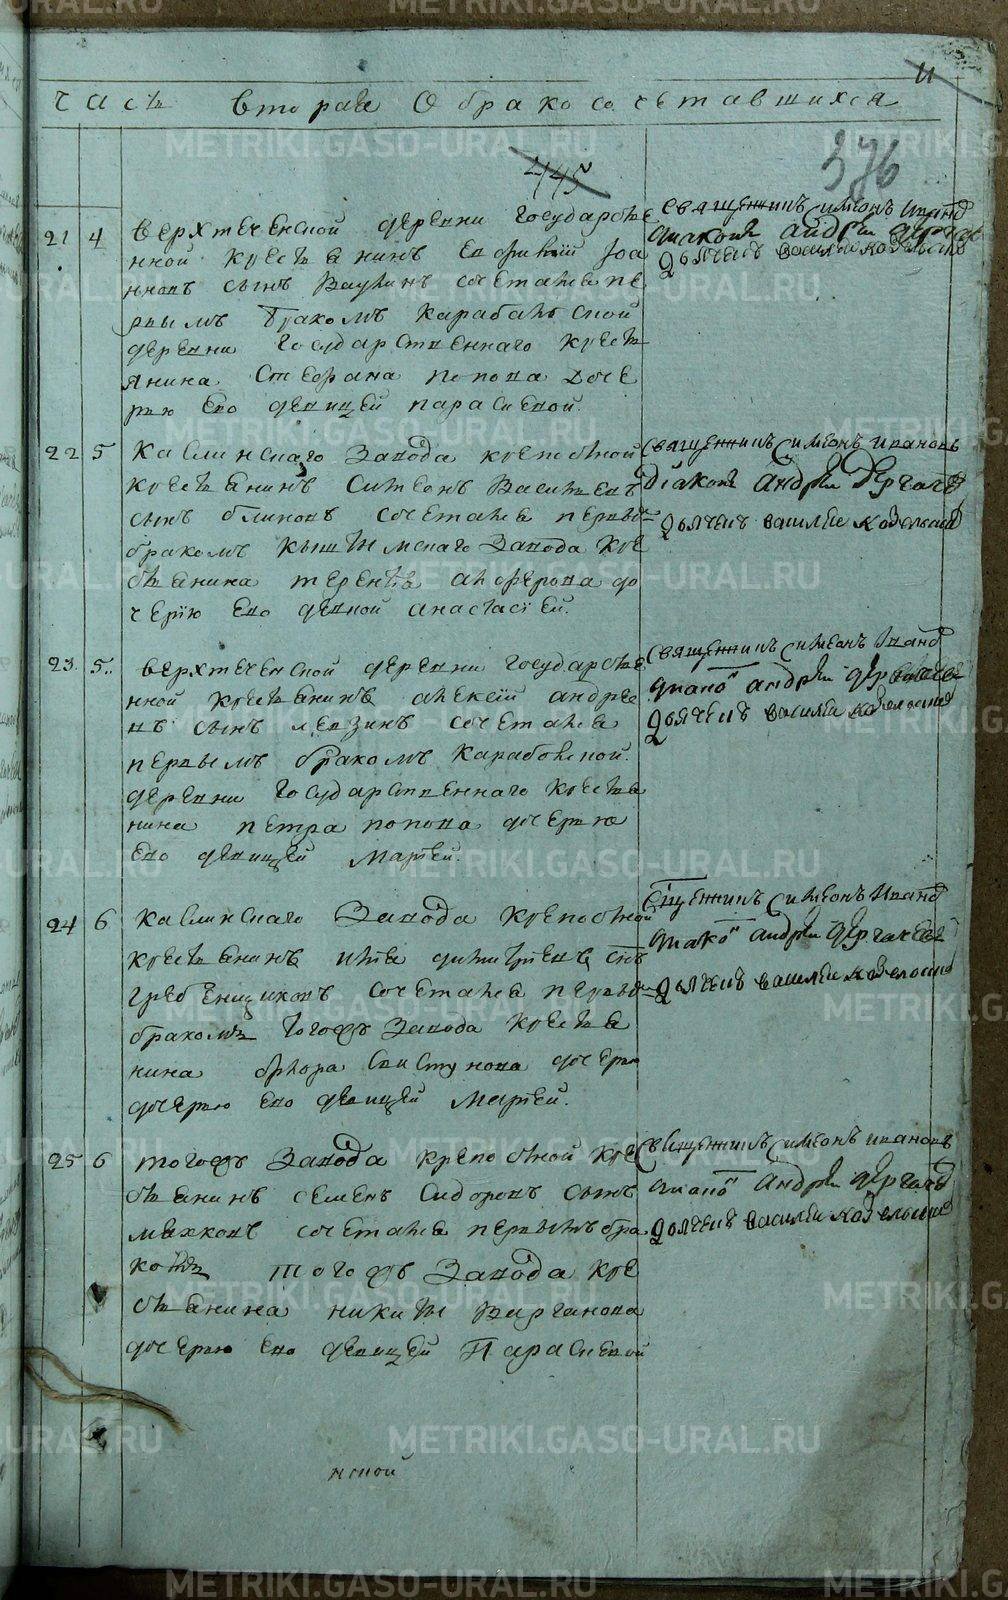 11
Часть вторая О бракосочетавшихся
445
376
21 4 Верхтеченской деревни государстве
нной крестьянинъ Евфимий Іоа
нновъ сынъ сочетался пе
рвымъ бракомъ Карабольской
деревни государственнаго кресть
янина Стефана Попова доче
рью Его девицей Параскевой.
Священникъ Симеонъ Иванов
диаконъ Андрей Дергачев
Дьячекъ Василей Козельский
22 5 Каслинскаго Завода крепостной
крестьянинъ Симеонъ Васильевъ
сынъ Блиновъ сочетался первы
бракомъ Кыштымскаго Завода кре
стьянина Терентья Алферова до
черїю Его девкой Анастасїей.
Священникъ Симеонъ Ивановъ
Дїаконъ Андрей Дергачев
Дьячекъ Василей Козельский
23. 5. Верхтеченской деревни государстве
нной крестьянинъ Алексей Андрее
въ сынъ Левзинъ сочетался
первымъ бракомъ Карабольской.
деревни Государственнаго крестья
нина Петра Попова дочерью
Его девицей Марфей.
Священникъ Симеонъ Иванов
диаконъ Андрей Дергачев
Дьячекъ Василей Козельский
24 6 Каслинскаго Завода крепостной
крестьянинъ Илья Димитриевъ снъ
Гребенщиковъ сочетался первы
бракомъ тогожъ Завода крестья
нина Флора Свистунова дочерью
дочерью Его девицей Марфей.
Сщенникъ Симеонъ Иванов
диаконъ Андрей Дергачев
Дьячекъ Василей Козельский
25 6 тогожъ Завода крепостной кре
стьянинъ Семенъ Сидоровъ сынъ
сочетался первымъ бра
комъ тогожъ Завода кре
стьянина Никиты Варганова
дочерью Его девицей Параскевой
Священникъ Симеонъ Ивановъ
диаконъ Андрей Дергачев
Дьячекъ Василей Козельский
нской
METRIKI.GASO-URAL.RU